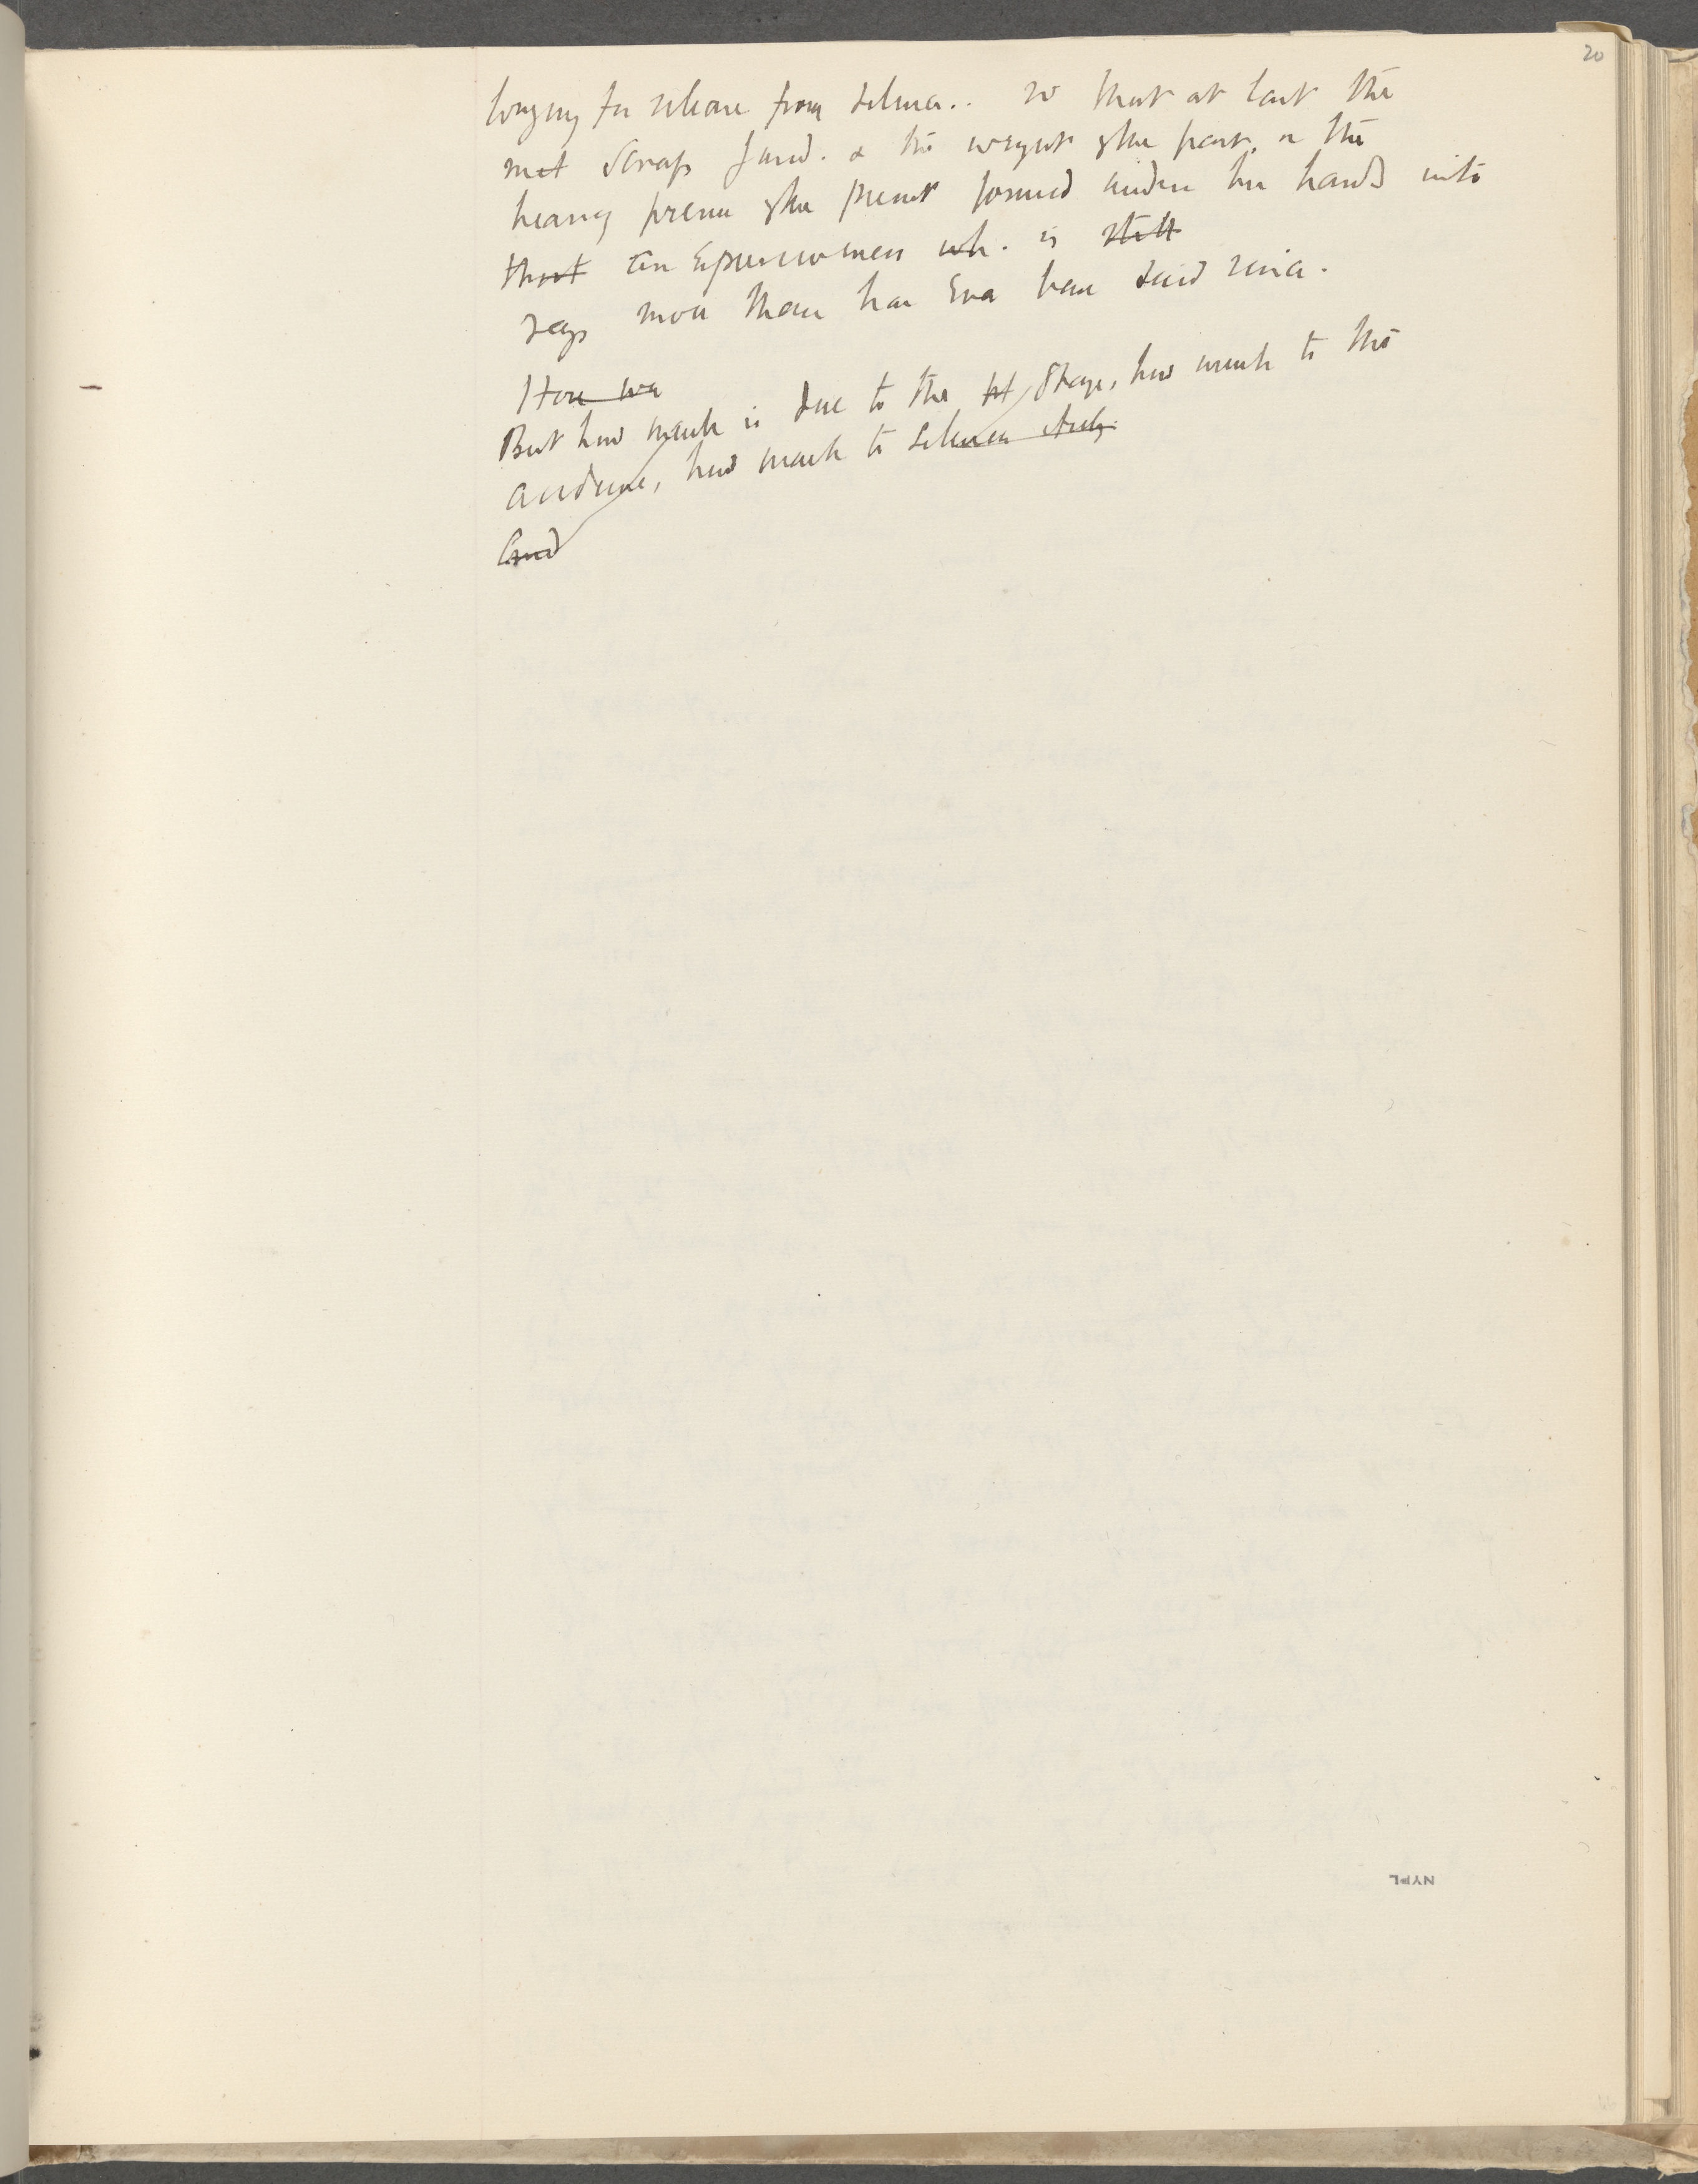 20
longing for release from Selma.. so that at last the
met scraps found. & the weight of the past, or the
heavy of the present formed under her hands into
that an expressiveness wh. is still
says more than has ever been said since.
How we
But how much is due to the Stage, how much to the
audience, how much to
And
NYPL